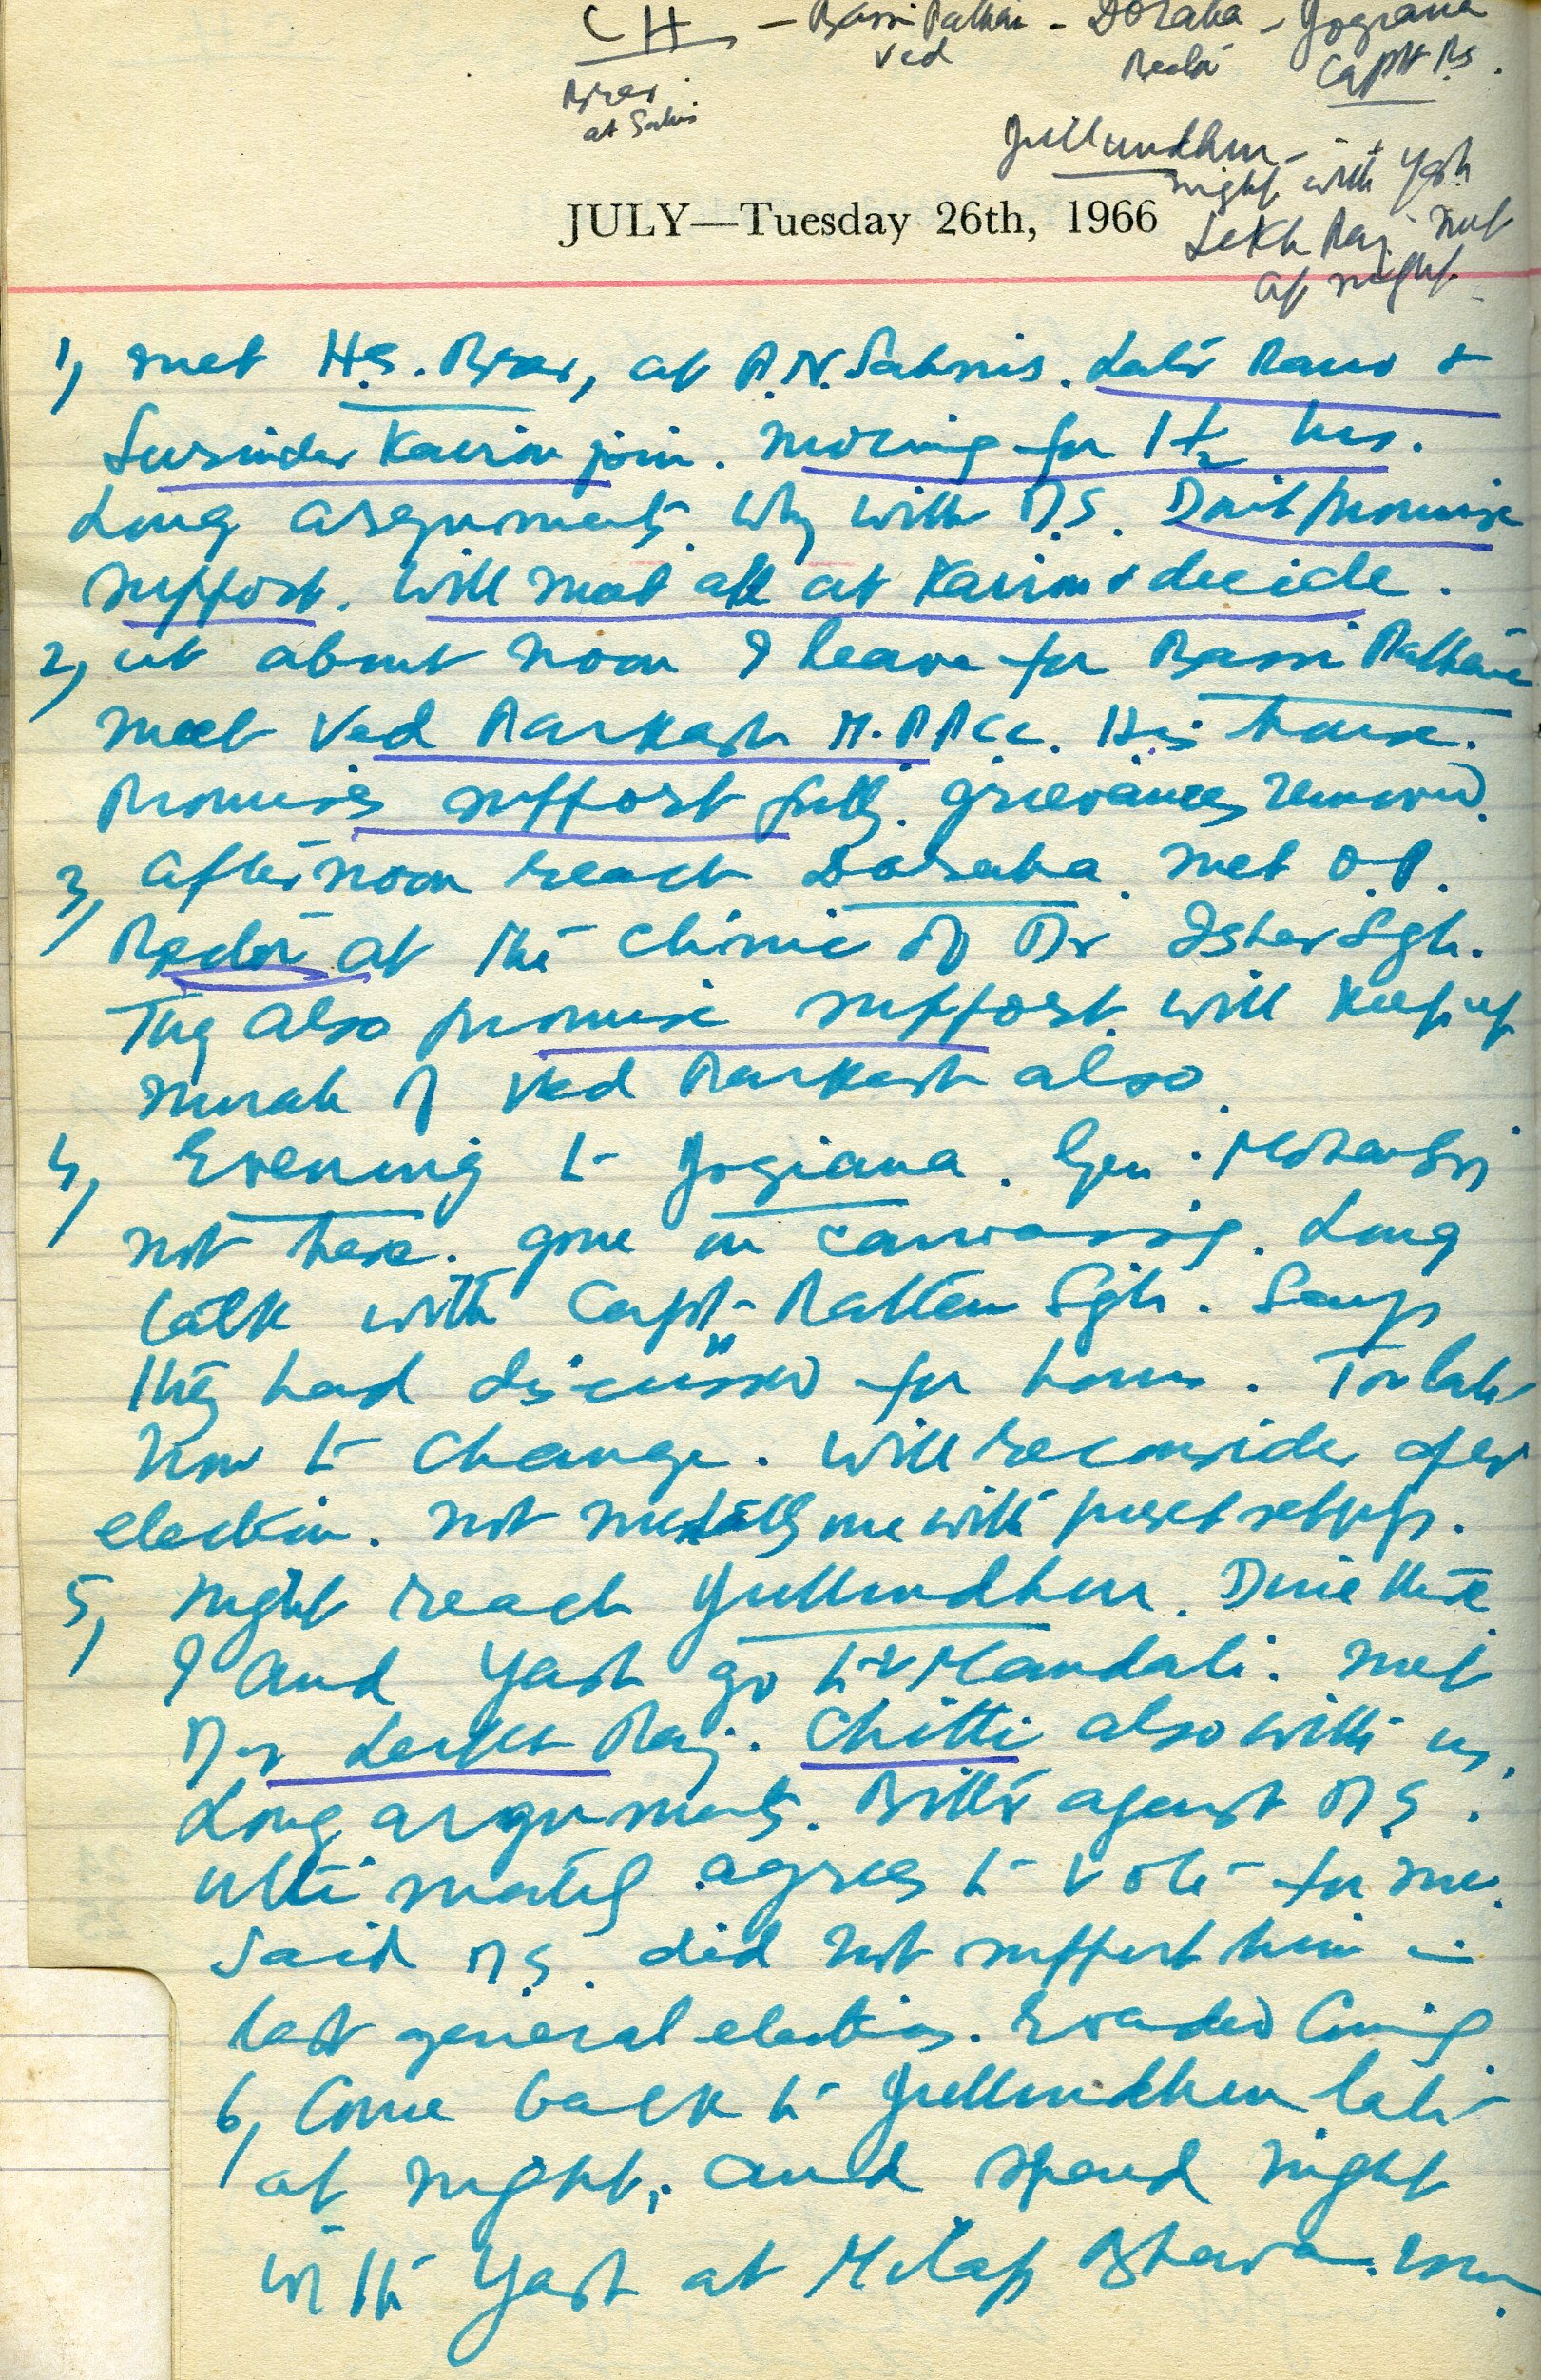 CH - Bassi Pathan - Doraha - Jogiana
Brar at Sahnis
Ved
Bedi
Capt RS.
Jullundhur -
night with Yash
JULY—Tuesday 26th, 1966
Lekh Raj met
at night
1, met H.S. Brar, at A.N. Sahnis. Later Rano +
Surinder Kairon join. Morning for 1½ hrs.
Long arguments. Why with D.S. Don't promise
support. Will meet all at Kairon & decide.
2, at about noon I leave for Bassi Pathan
meet Ved Parkash M.PPCC. His house.
Promises support fully. Grievances removed.
3, Afternoon reach Doraha. met O.P.
at the clinic of Dr Isher Sgh.
They also promise support. Will keep up
morale of Ved Parkash also.
4, Evening to Jogiana. Gen. Mohan Sgh
not here. Gone on canvassing. Long
talk with Capt. Rattan Sgh. Says
they had discussed for hours. Too late
now to change. Will reconsider after
election. Not me with
5, Night reach Jullundhur. Dine there
I and Yash go to Mandali. Met
Dr Lekh Raj. Chitti also with us.
Long arguments. Bitter against DS.
Ultimately agrees to vote for me.
Said DS. did not support him in
last general elections. Evaded coming
6, Come back to Jullundhur late
at night, and spend night
with Yash at Milap Bhavan.